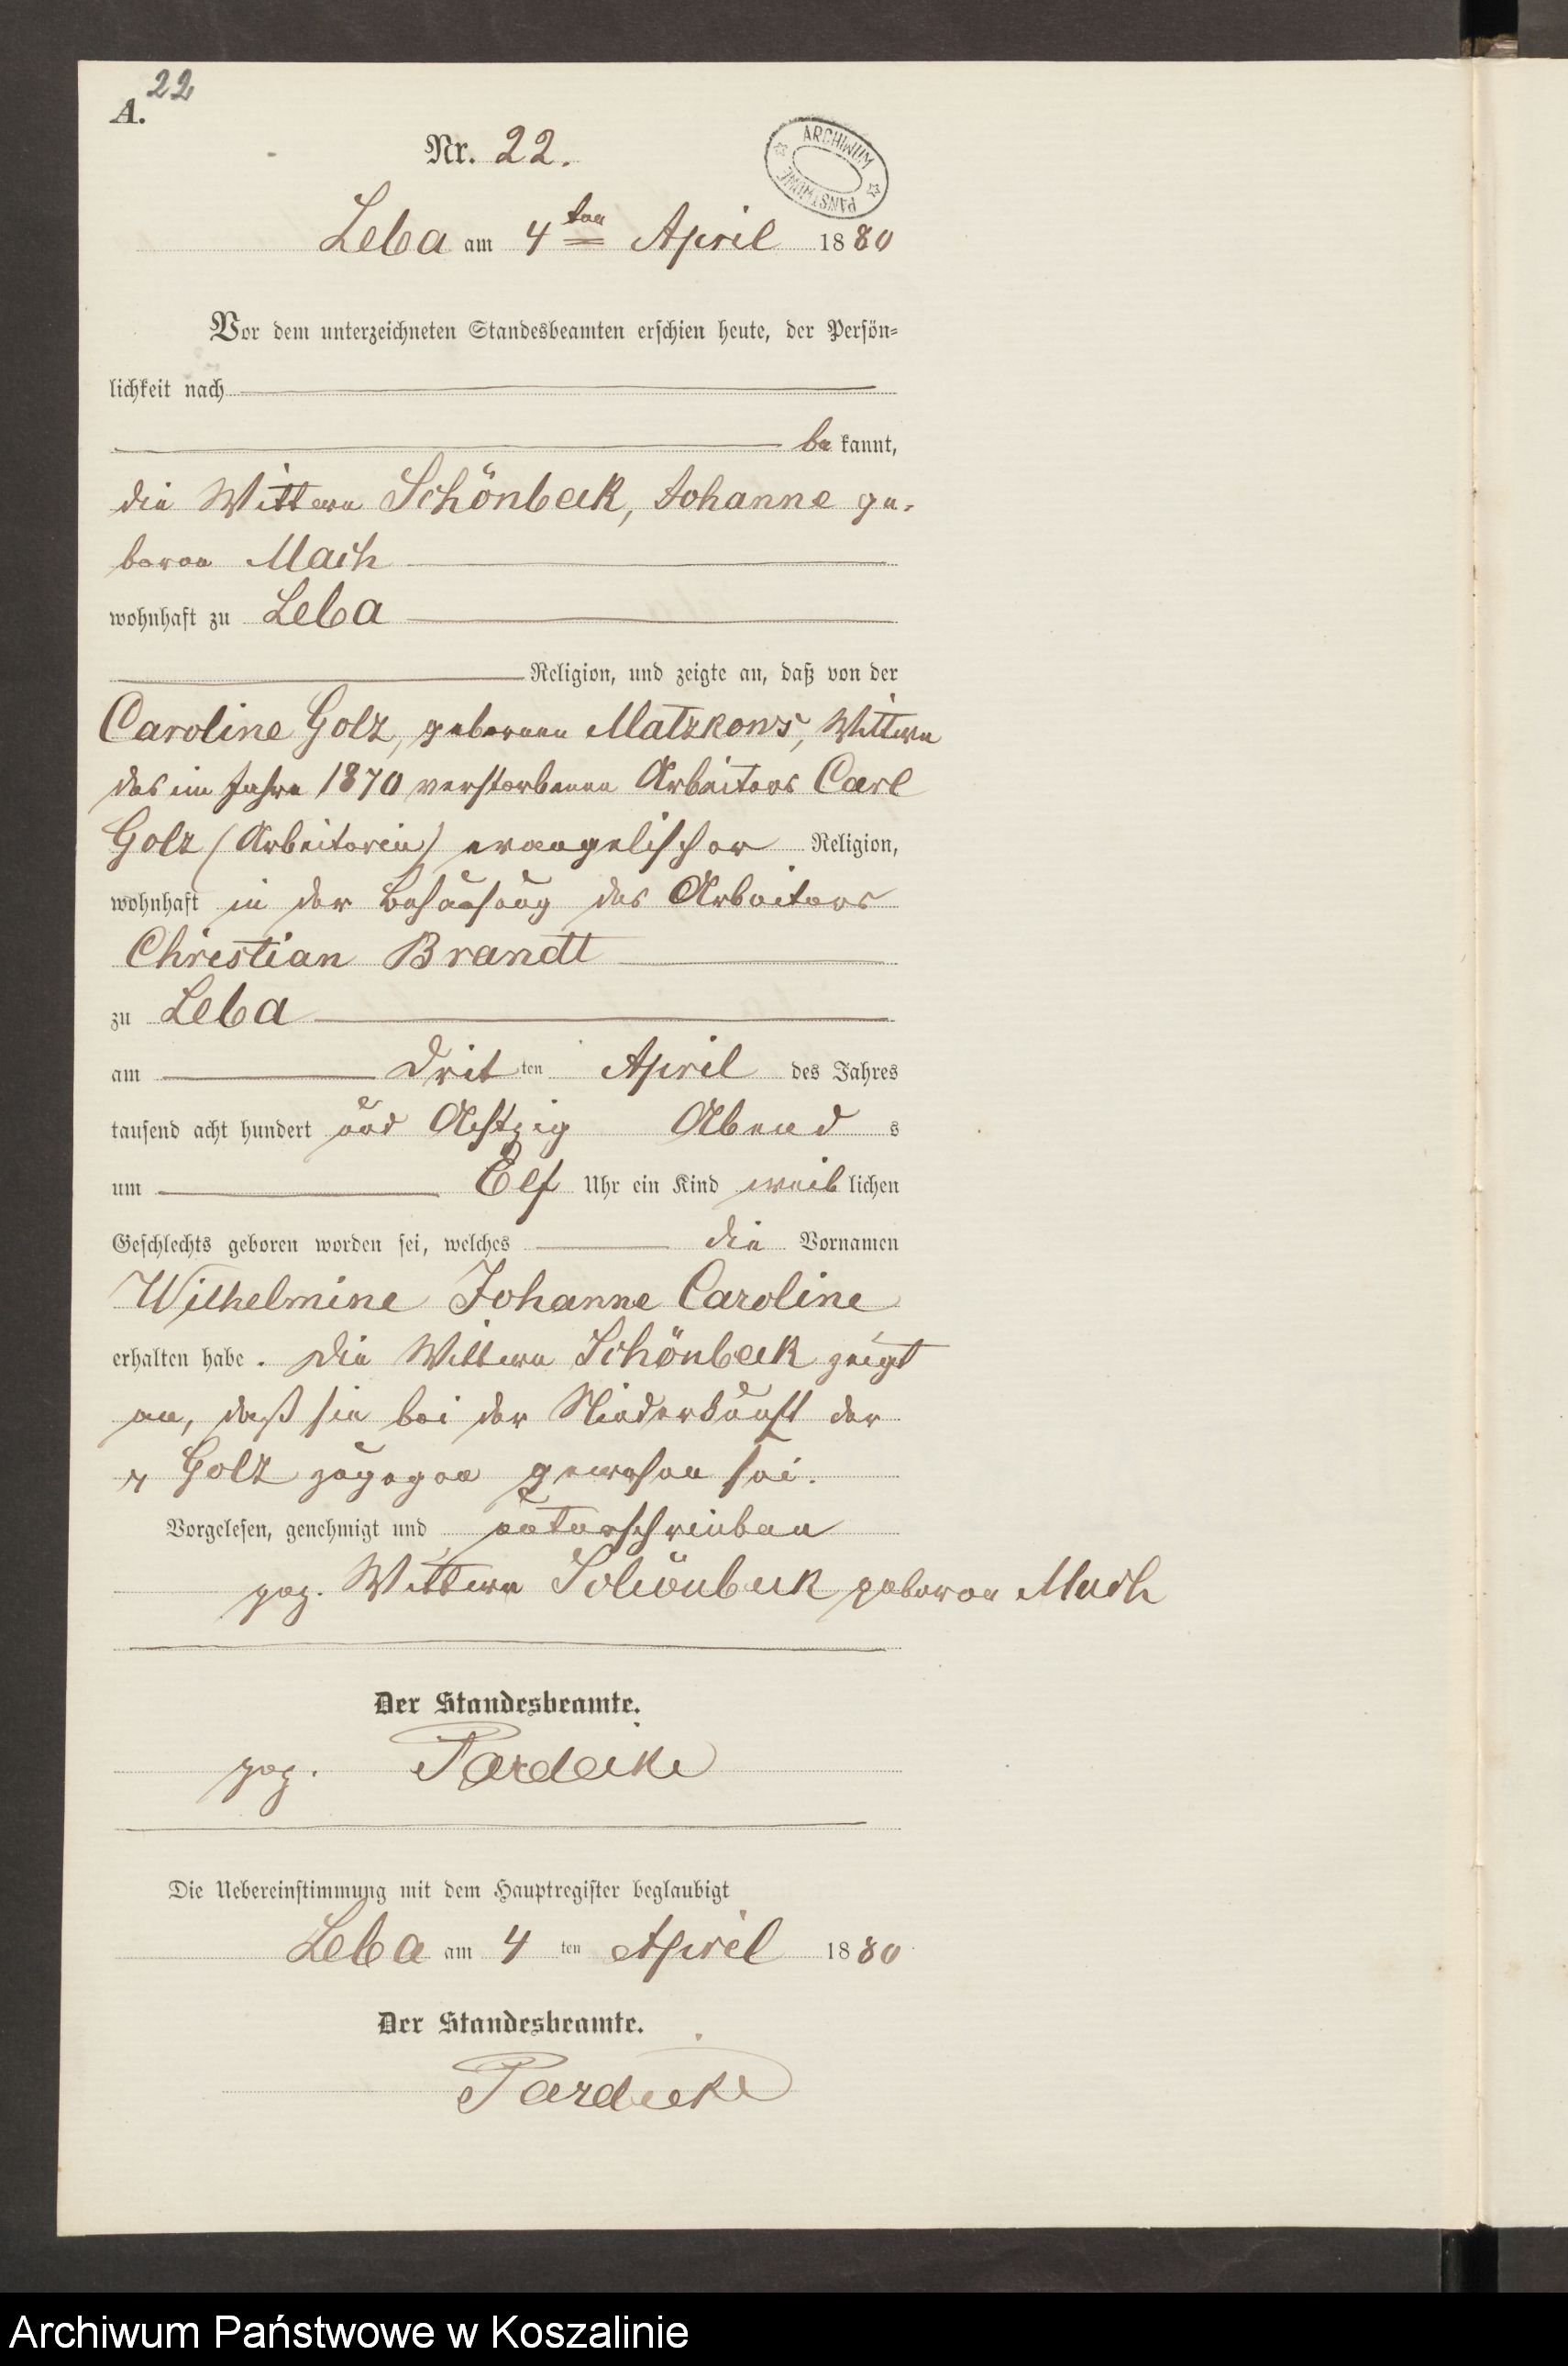 22
A.
Nr. 22.
ARCHIWUM PAŃSTWOWE
Leba am 4ten April 1880
Vor dem unterzeichneten Standesbeamten erschien heute, der Persön-
lichkeit nach
bekannt,
die Wittwe Schönbeck, Johanne ge-
boren Mach
wohnhaft zu Leba
Religion, und zeigte an, daß von der
Caroline Golz, geborenen Matzkows, Wittwe
des im Jahre 1870 verstorbenen Arbeiters Carl
Golz (Arbeiterin) evangelischer Religion,
wohnhaft in der Behausung des Arbeiters
Christian Brandt
zu Leba
am Dritten April des Jahres
tausend acht hundert und Achtzig Abends
um Elf Uhr ein Kind weiblichen
Geschlechts geboren worden sei, welches die Vornamen
Wilhelmine Johanne Caroline
erhalten habe. Die Wittwe Schönbeck zeigt
an, daß sie bei der Niederkunft der
Golz zugegen gewesen sei.
Vorgelesen, genehmigt und unterschrieben
gez. Wittwe Schönbeck geboren Mach
Der Standesbeamte.
gez. Pardeike
Die Uebereinstimmung mit dem Hauptregister beglaubigt
Leba am 4ten April 1880
Der Standesbeamte.
Pardeike
Archiwum Państwowe w Koszalinie